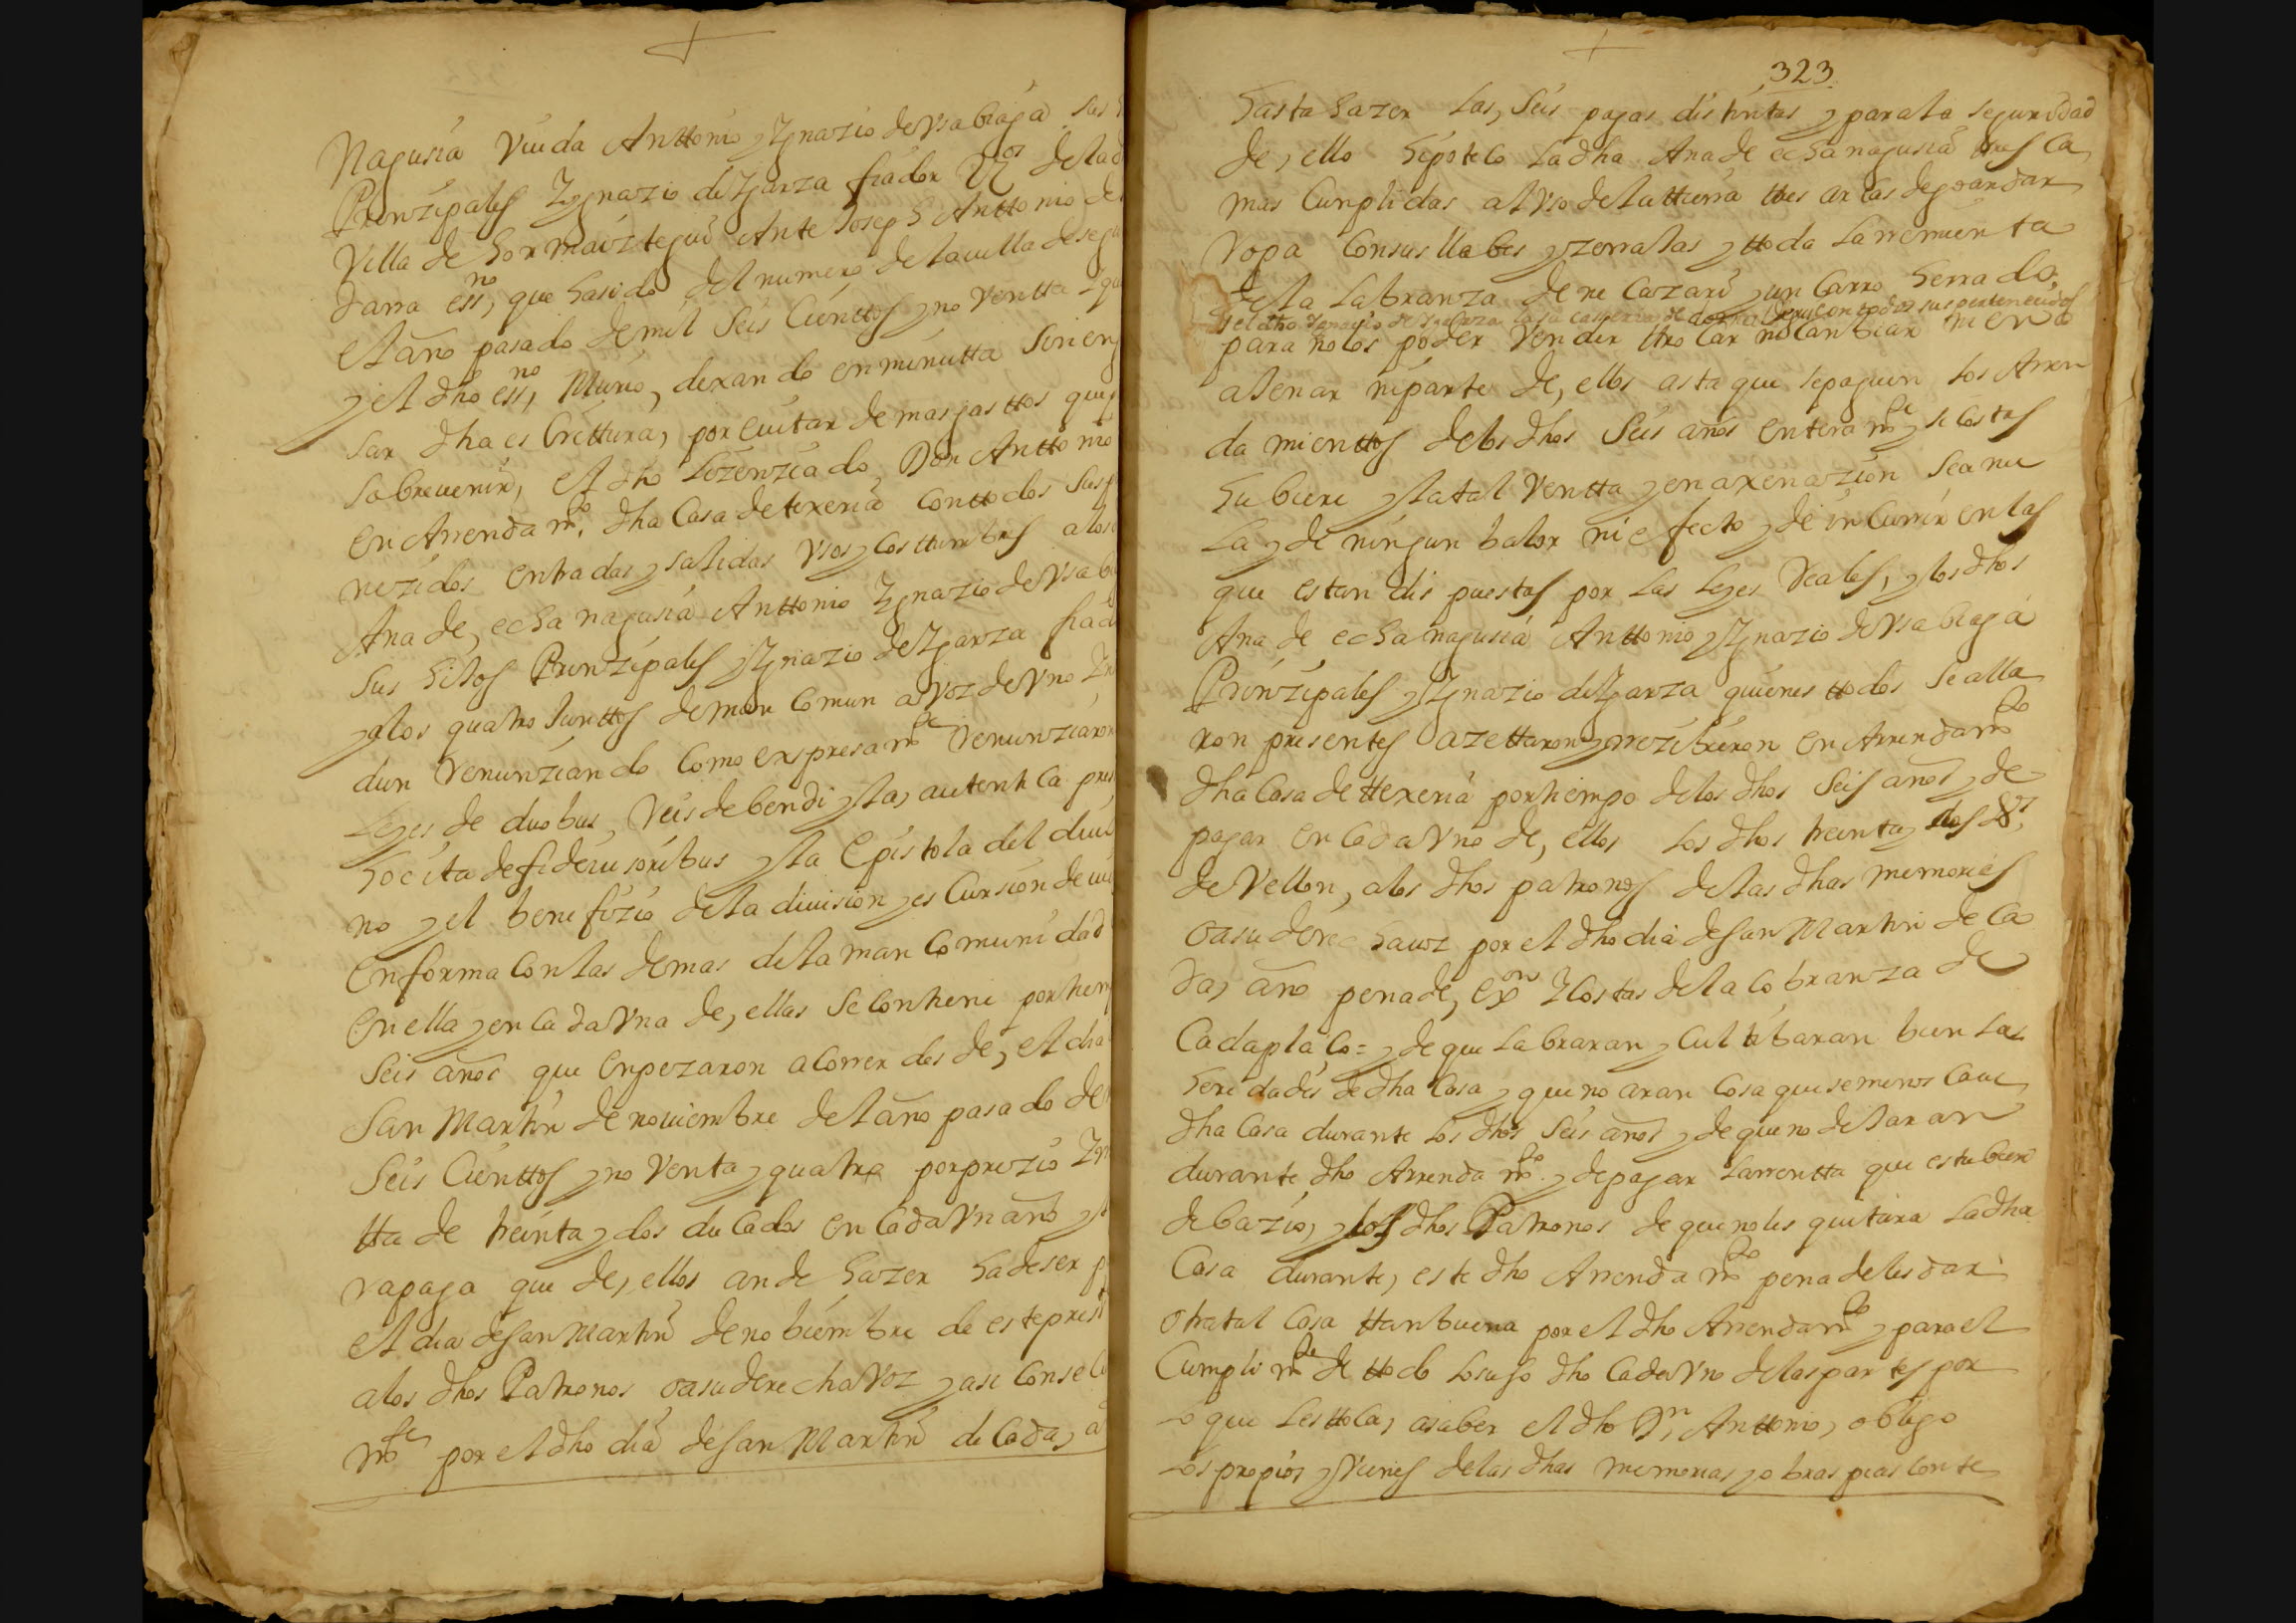 Nagusia Viuda Anttonio y Ygnazio de Vsabiaga sus
Prinzipales Ygnazio de Ygarza fiador Vos de la d
Villa de hormaiztegui Ante Joseph Anttonio de
darra essno, que ha sido del numero de la villa de segu
el año pasado de mil Seis Cienttos y no Ventta
y el dho essno, Murio, dexando en minutta sin en
sar dha es Crittura, por euitar demas gasttos que
sobreuenir, el dho Lizenziado Don Anttonio
en Arrendamto. dha Casa de texeria conttodos sus p
nezidos entradas y salidas Vsos y costtumbres a los
Ana de, echanagusia Anttonio Ygnazio de Vsabi
Sus hiJos Prinzipales y Ygnazio de Ygarza fiad
y a los quatro Junttos de man Comun a voz de Vno Yn
dun renunziando Como expresamte renunziaron
Leyes de duobus, Reis debendi y la, autentica pres
hocita de fideiusoribus y la Epistola del diui
no y el benefizio de la diuision y es Cursion de ui
En forma Con las demas de la man Comunidad
En ella y en Cada Vna de, ellas se Contiene por tiem
Seis años que Enpezaron a Correr des de, el dia
San Martin de nouiembre del año pasado de
Seis Cienttos y no Venta y quatro por prezio
tta de treinta y dos du Cados en Cada Vn año y
ra paga que de, ellos an de hazer ha de ser p
el dia de San Martin de nobiembre de este prest
a los dhos Patronos o a su derecha Voz y asi Conse
mte por el dho dia de San Martin de Cada, a
323
hasta hazer las, Seis pagas distintas y para la seguridad
de, ello hipoteco la dha Ana de echanagusia tres Ca
mas Cunplidas al Vso de la ttierra ttres arcas de goardar
ropa Con sus llabes y zerraJas y ttoda la rremienta
de la labranza de ne Cazari y un Carro herrado,
y el dho Ygnazio de Ygarza la su caseria de con todos sus pertenezidos
para no los poder Vender ttro Car ni Canbiar ni en a
aJenar ni parte de, ellos asta que se paguen los Arren
da mienttos de los dhos Seis años enteramte y si Costas
hubiere y la tal Ventta y enaxenazion sea nu
la y de ningun balor ni efecto y de in Currir en las
que estan dis puestas por las Leyes Reales, y los dhos
Ana de echanagusia Anttonio y Ygnazio de Vsabiaga
Prinzipales y Ygnazio de Ygarza quienes ttodos se alla
ron presentes azettaron y rrezibieron en Arrendamto
dha Casa de ttexeria por tiempo de los dhos Seis años y de
pagar en Cada Vno de, ellos los dhos treinta y dos dos
de Vellon, a los dhos patronos de las dhas memorias
o a su dere ha uoz por el dho dia de San Martin de Ca
da, año pena de, exon y Costas de la Cobranza de
Cada pla Co = y de que labraran y Cul tibaran bien las
here dades de dha Casa y que no aran Cosa que se menos Caue
dha Casa durante los dhos Seis años y de que no deJaran
durante dho Arrendamto. y de pagar la rrentta que estubiere
de bazio, y los dhos Patronos de que no les quitara la dha
Casa durante, este dho Arrendamto pena de les dar
otra tal Casa ttan buena por el dho Arrendamto y para el
Cumplimto de ttodo lo su so dho Cada Vno de las partes por
lo que les ttoca, a saber el dho Dn, Anttonio, obligo
los propios y Vienes de las dhas memorias y obras pias Conte